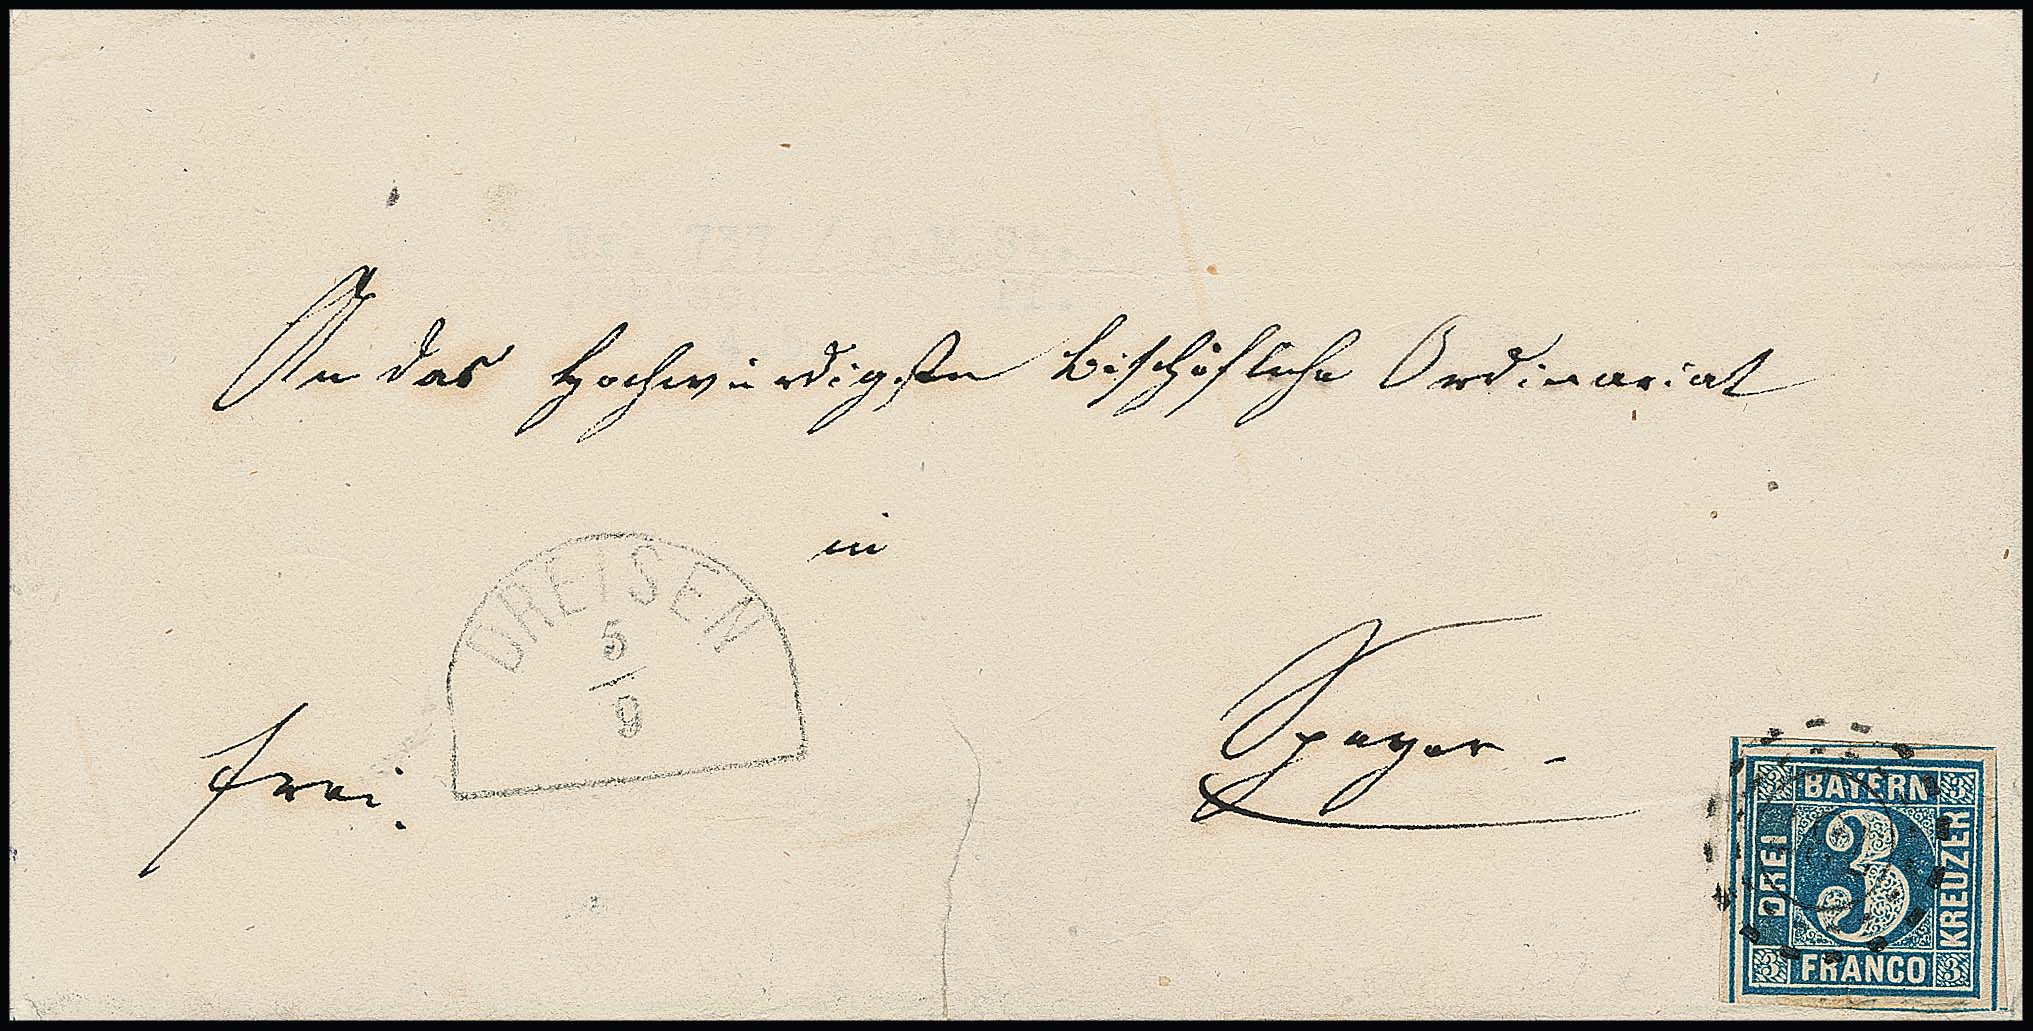 An das Hochwürdigsten bischöfliche Ordinariat
in
DREISEN
5
9
Speyer
frei.
BAYERN
DREI
3
KREUZER
FRANCO
3
3
3
3